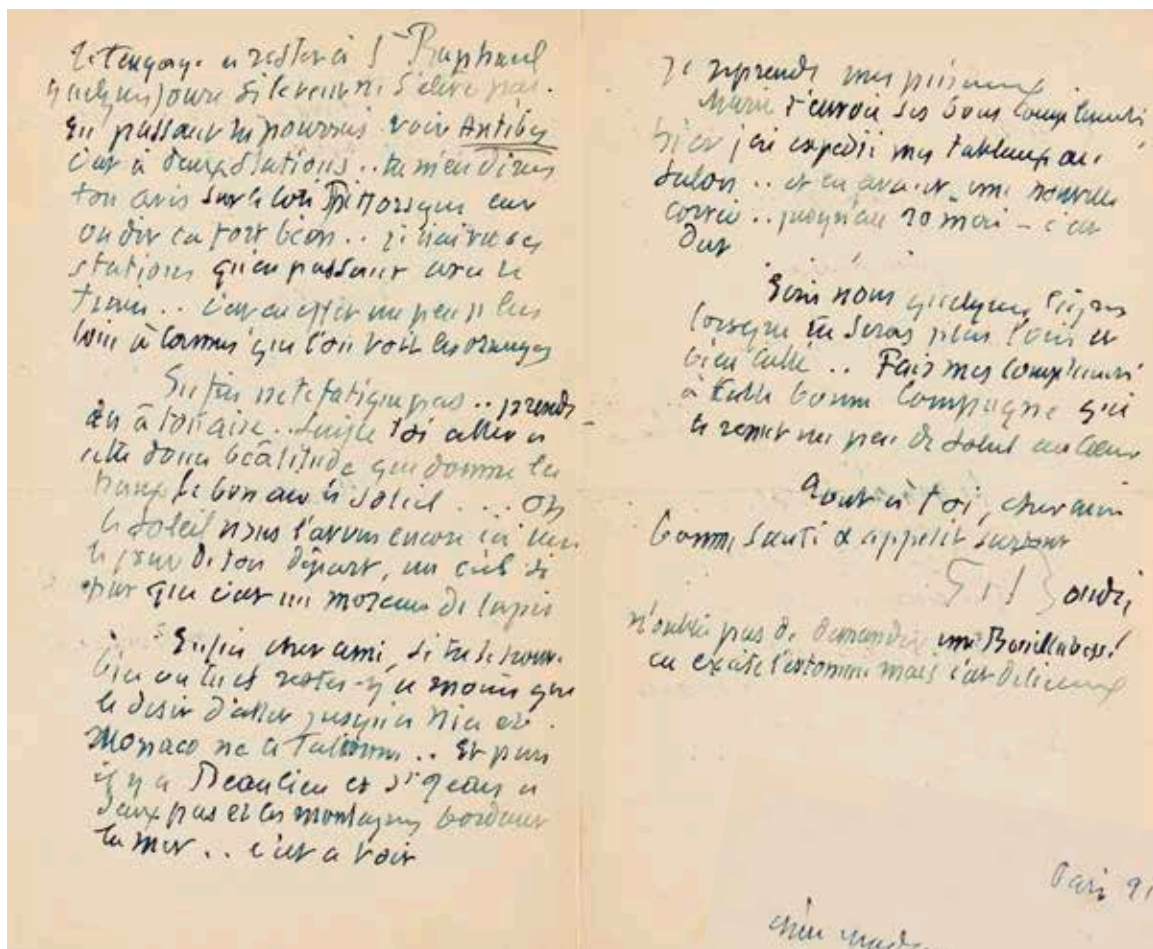 Je t'engage à rester à St Raphael
quelques jours si le vent ne s'élève pas.
En passant tu pourras voir Antibes
c'est à deux stations .. tu m'en diras
ton avis sur le coté Pittoresque car
on dit ca fort bien .. je n'ai vu ces
stations qu'en passant avec le
train .. c'est en effet un peu plus
loin à Cannes que l'on voit les oranges
Enfin ne te fatigue pas .. prends
en à ton aise .. laisse toi aller à
cette douce béatitude que donne la
le bon air le soleil .... Oh
le soleil nous l'avons encore ici
le jour de ton départ, un ciel si
pur que c'est un morceau de lapis
Enfin cher ami, si tu te trouve
bien où tu es restes-y à moins que
le desir d'aller jusqu'à Nice et
Monaco ne te talonne .. Et puis
il y a Beaulieu et St Jean à
deux pas et les montagnes bordant
la mer .. c'est a voir
Je reprends mes pinceaux
Marie t'envoie ses bons compliments
hier j'ai expédié mes tableaux au
salon .. et en avant une nouvelle
corvée .. jusqu'au 20 mai - c'est
dur
Ecris nous quelques lignes
lorsque tu seras plus loin et
bien calé .. Fais mes compliments
à cette bonne Compagne qui
te remet un peu de soleil au coeur
Tout à toi, cher ami
bonne santé & appetit surtout
n'oublie pas de demander une Bouillabesse!
ca excite l'estomac mais c'est delicieux
Paris 91